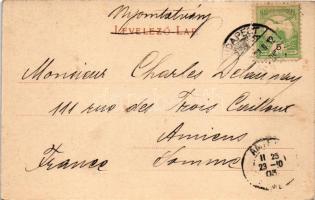 Nyomtatvány
LEVELEZŐ LAP
Monsieur Charles Delaunay
111 rue des Trois Cailloux
Amiens
France Somme
11 25
23 -10
03